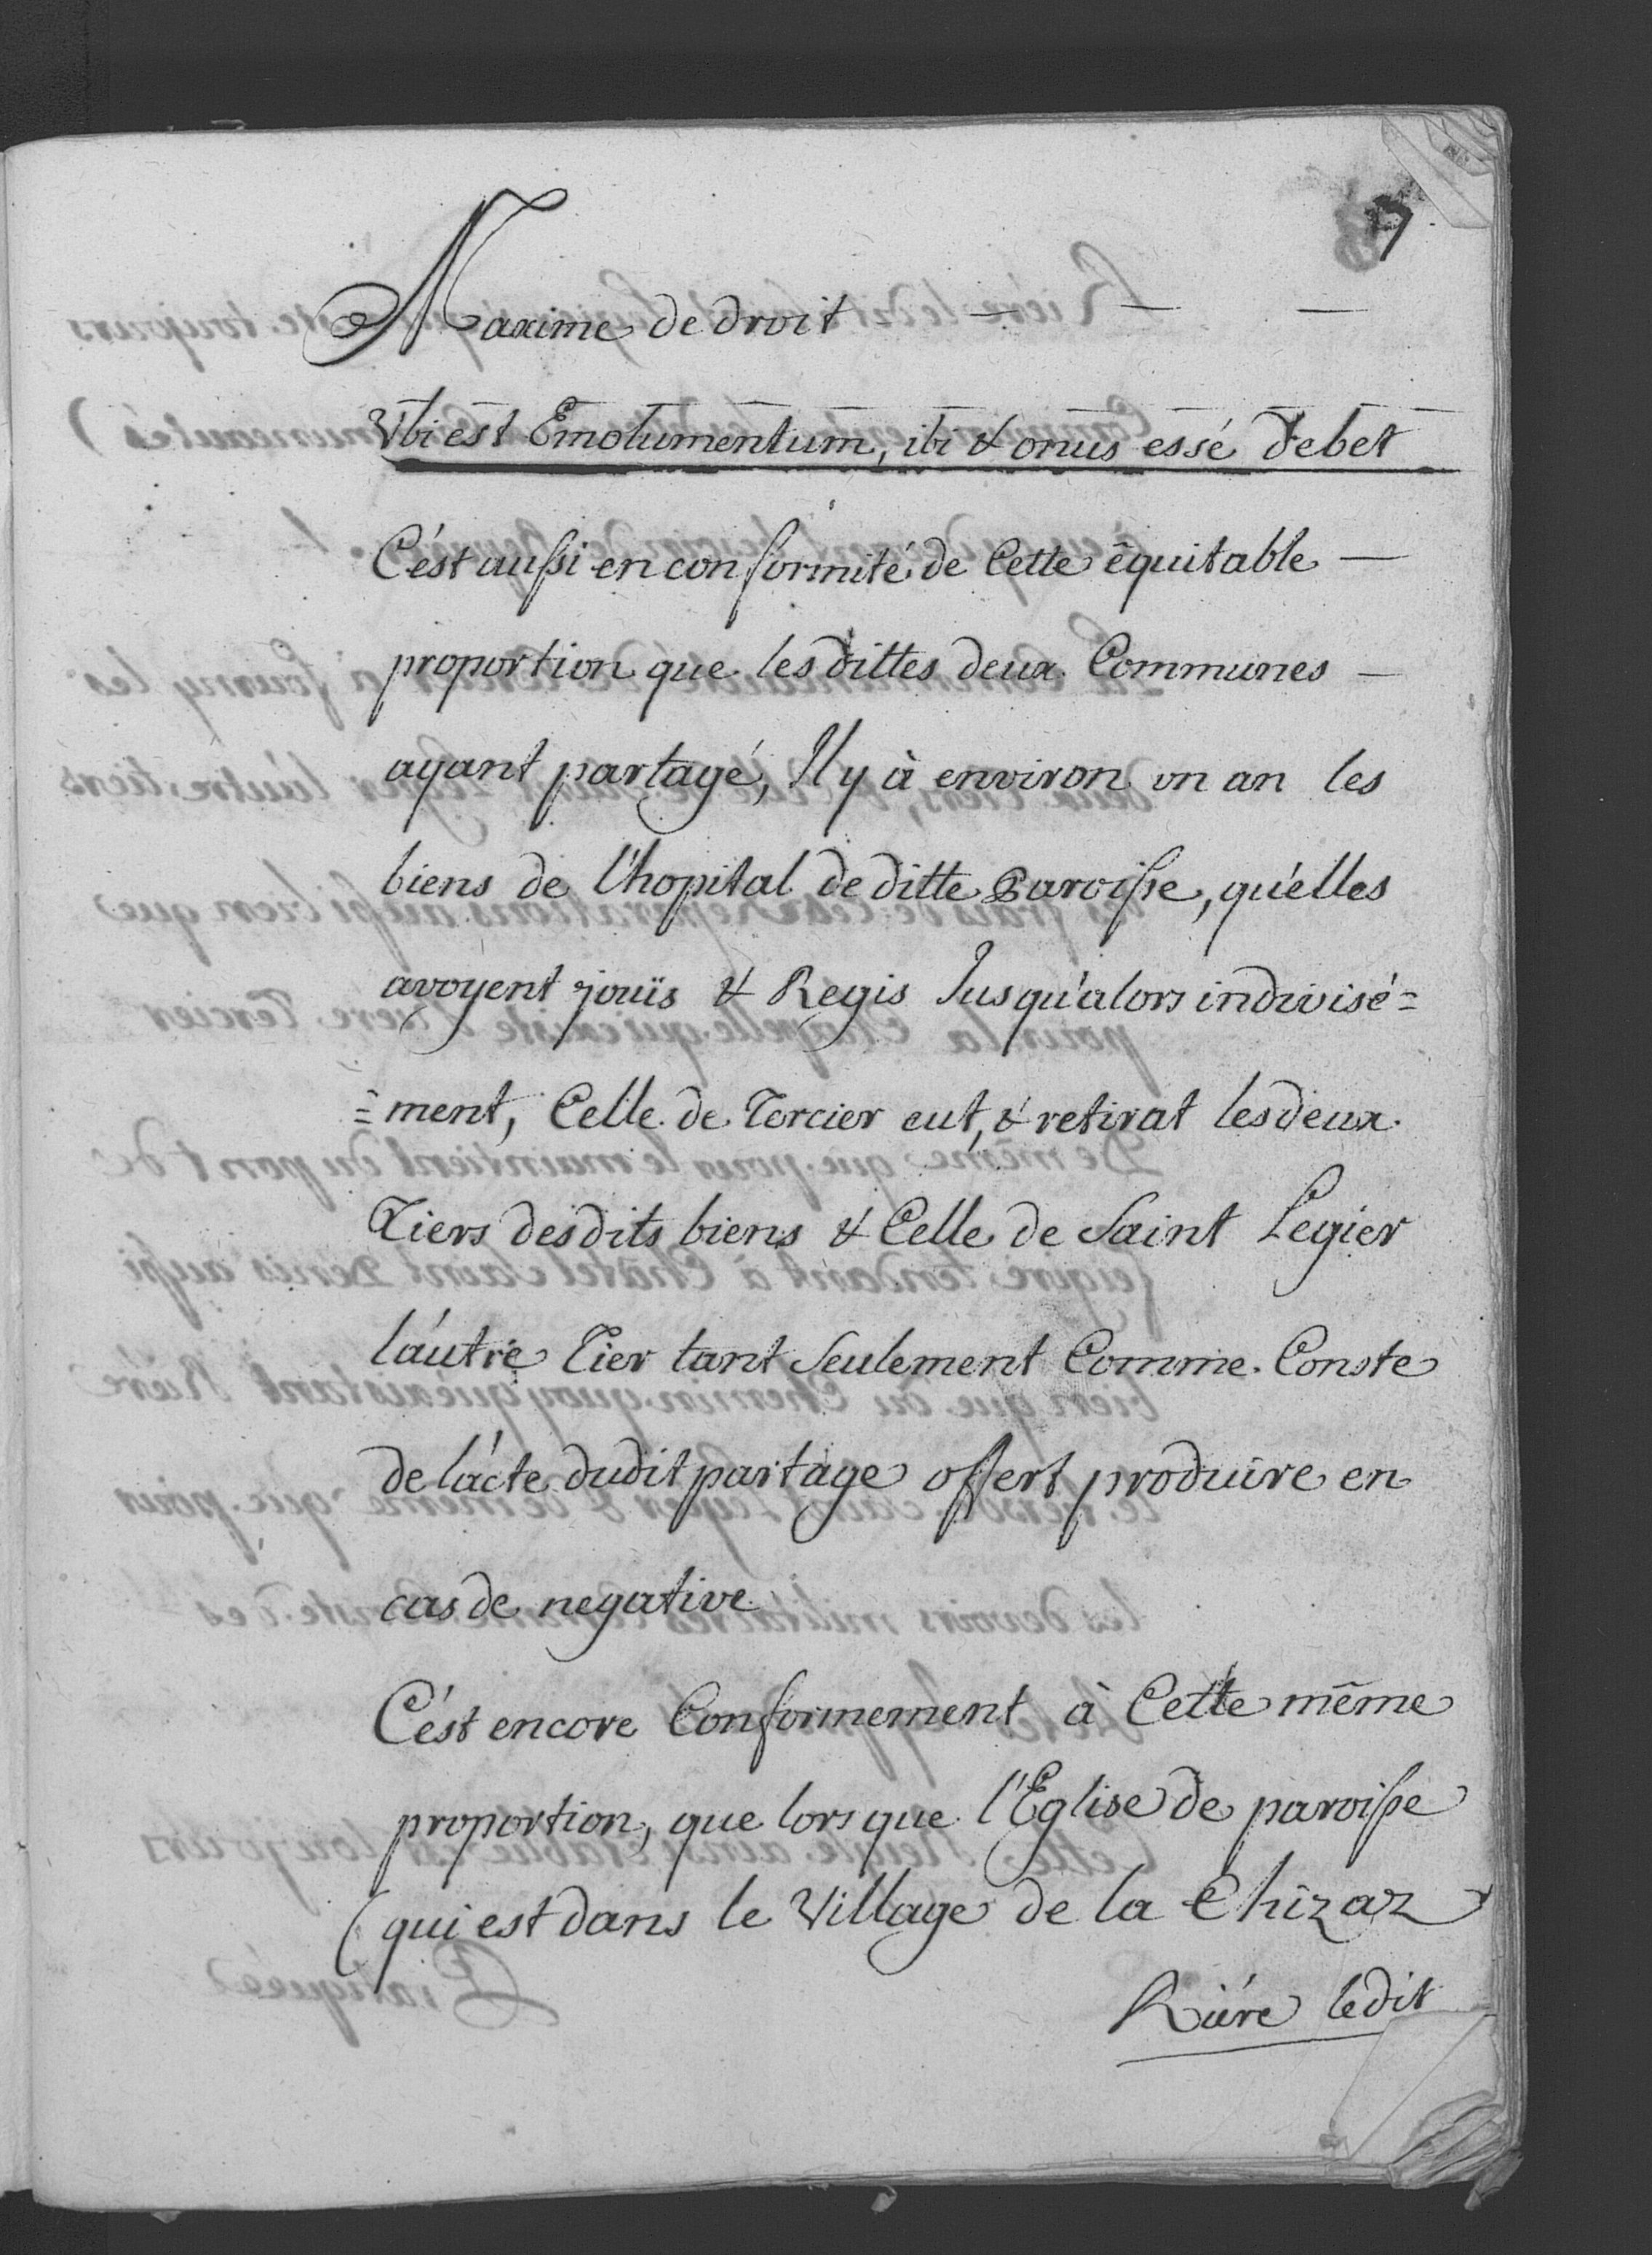 7
Maxime de droit - — — —
Vbi est Emolumentum, ibi & onus essé debet
C'ést aussi en conformité de Cette êquitable —
proportion que les dittes deux Communes —
ayant partagé, Il y à environ vn an les
biens de l'hopital de ditte Paroisse, qu'elles
avoyent joüis & Regis Jusqu'alors indivisé=
=ment, Celle de Torcier eut, & retirat les deux
Tiers desdits biens & Celle de Saint Legier
l'autre Tier tant Seulement Comme Conste
de l'acte dudit partage offert produire en
cas de negative
C'ést encore Conformement à Cette même
proportion, que lors que l'Eglise de paroisse
(qui est dans le Village de la Chizaz
Riére ledit